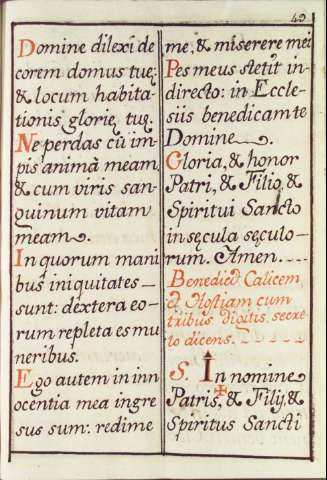 49
Domine dilexi de
corem domus tuę:
& locum habita-
tionis glorię tuę.
Ne perdas cū im-
pis animā meam
& cum viris san-
guinum vitam
meam.
In quorum mani
bus iniquitates
sunt: dextera eo-
rum repleta est mu
neribus.
Ego autem in inn
ocentia mea ingre
sus sum: redime
me, & miserere mei
Pes meus stetit in-
directo: in Eccle-
siis benedicam te
Domine.
Gloria, & honor
Patri, & Filio, &
Spiritui Sancto
in sęcula sęculo-
rum. Amen.
Benedicit Calicem,
& Hostiam cum
tribus digitis secre-
to dicens.
S. In nomine
Patris, ✠ & Filij, &
Spiritus Sancti